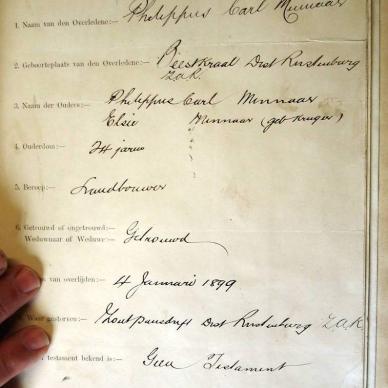 1. Naam van den Overledene:— Philippus Carl Minnaar
2. Geboorteplaats van den Overledene:— Beestkraal Dist Rustenburg
ZAR.
3. Naam der Ouders:— Philippus Carl Minnaar
Elsie Minnaar (geb Kruger)
4. Ouderdom:— 34 jaren
5. Beroep:— Landbouwer
6. Getrouwd of ongetrouwd:—
Weduwnaar of Weduwe:— Getrouwd
van overlijden:— 4 Januarie 1899
Waar gestorven:— Zoutpansdrift Dist Rustenburg ZAR
testament bekend is:— Geen Testament